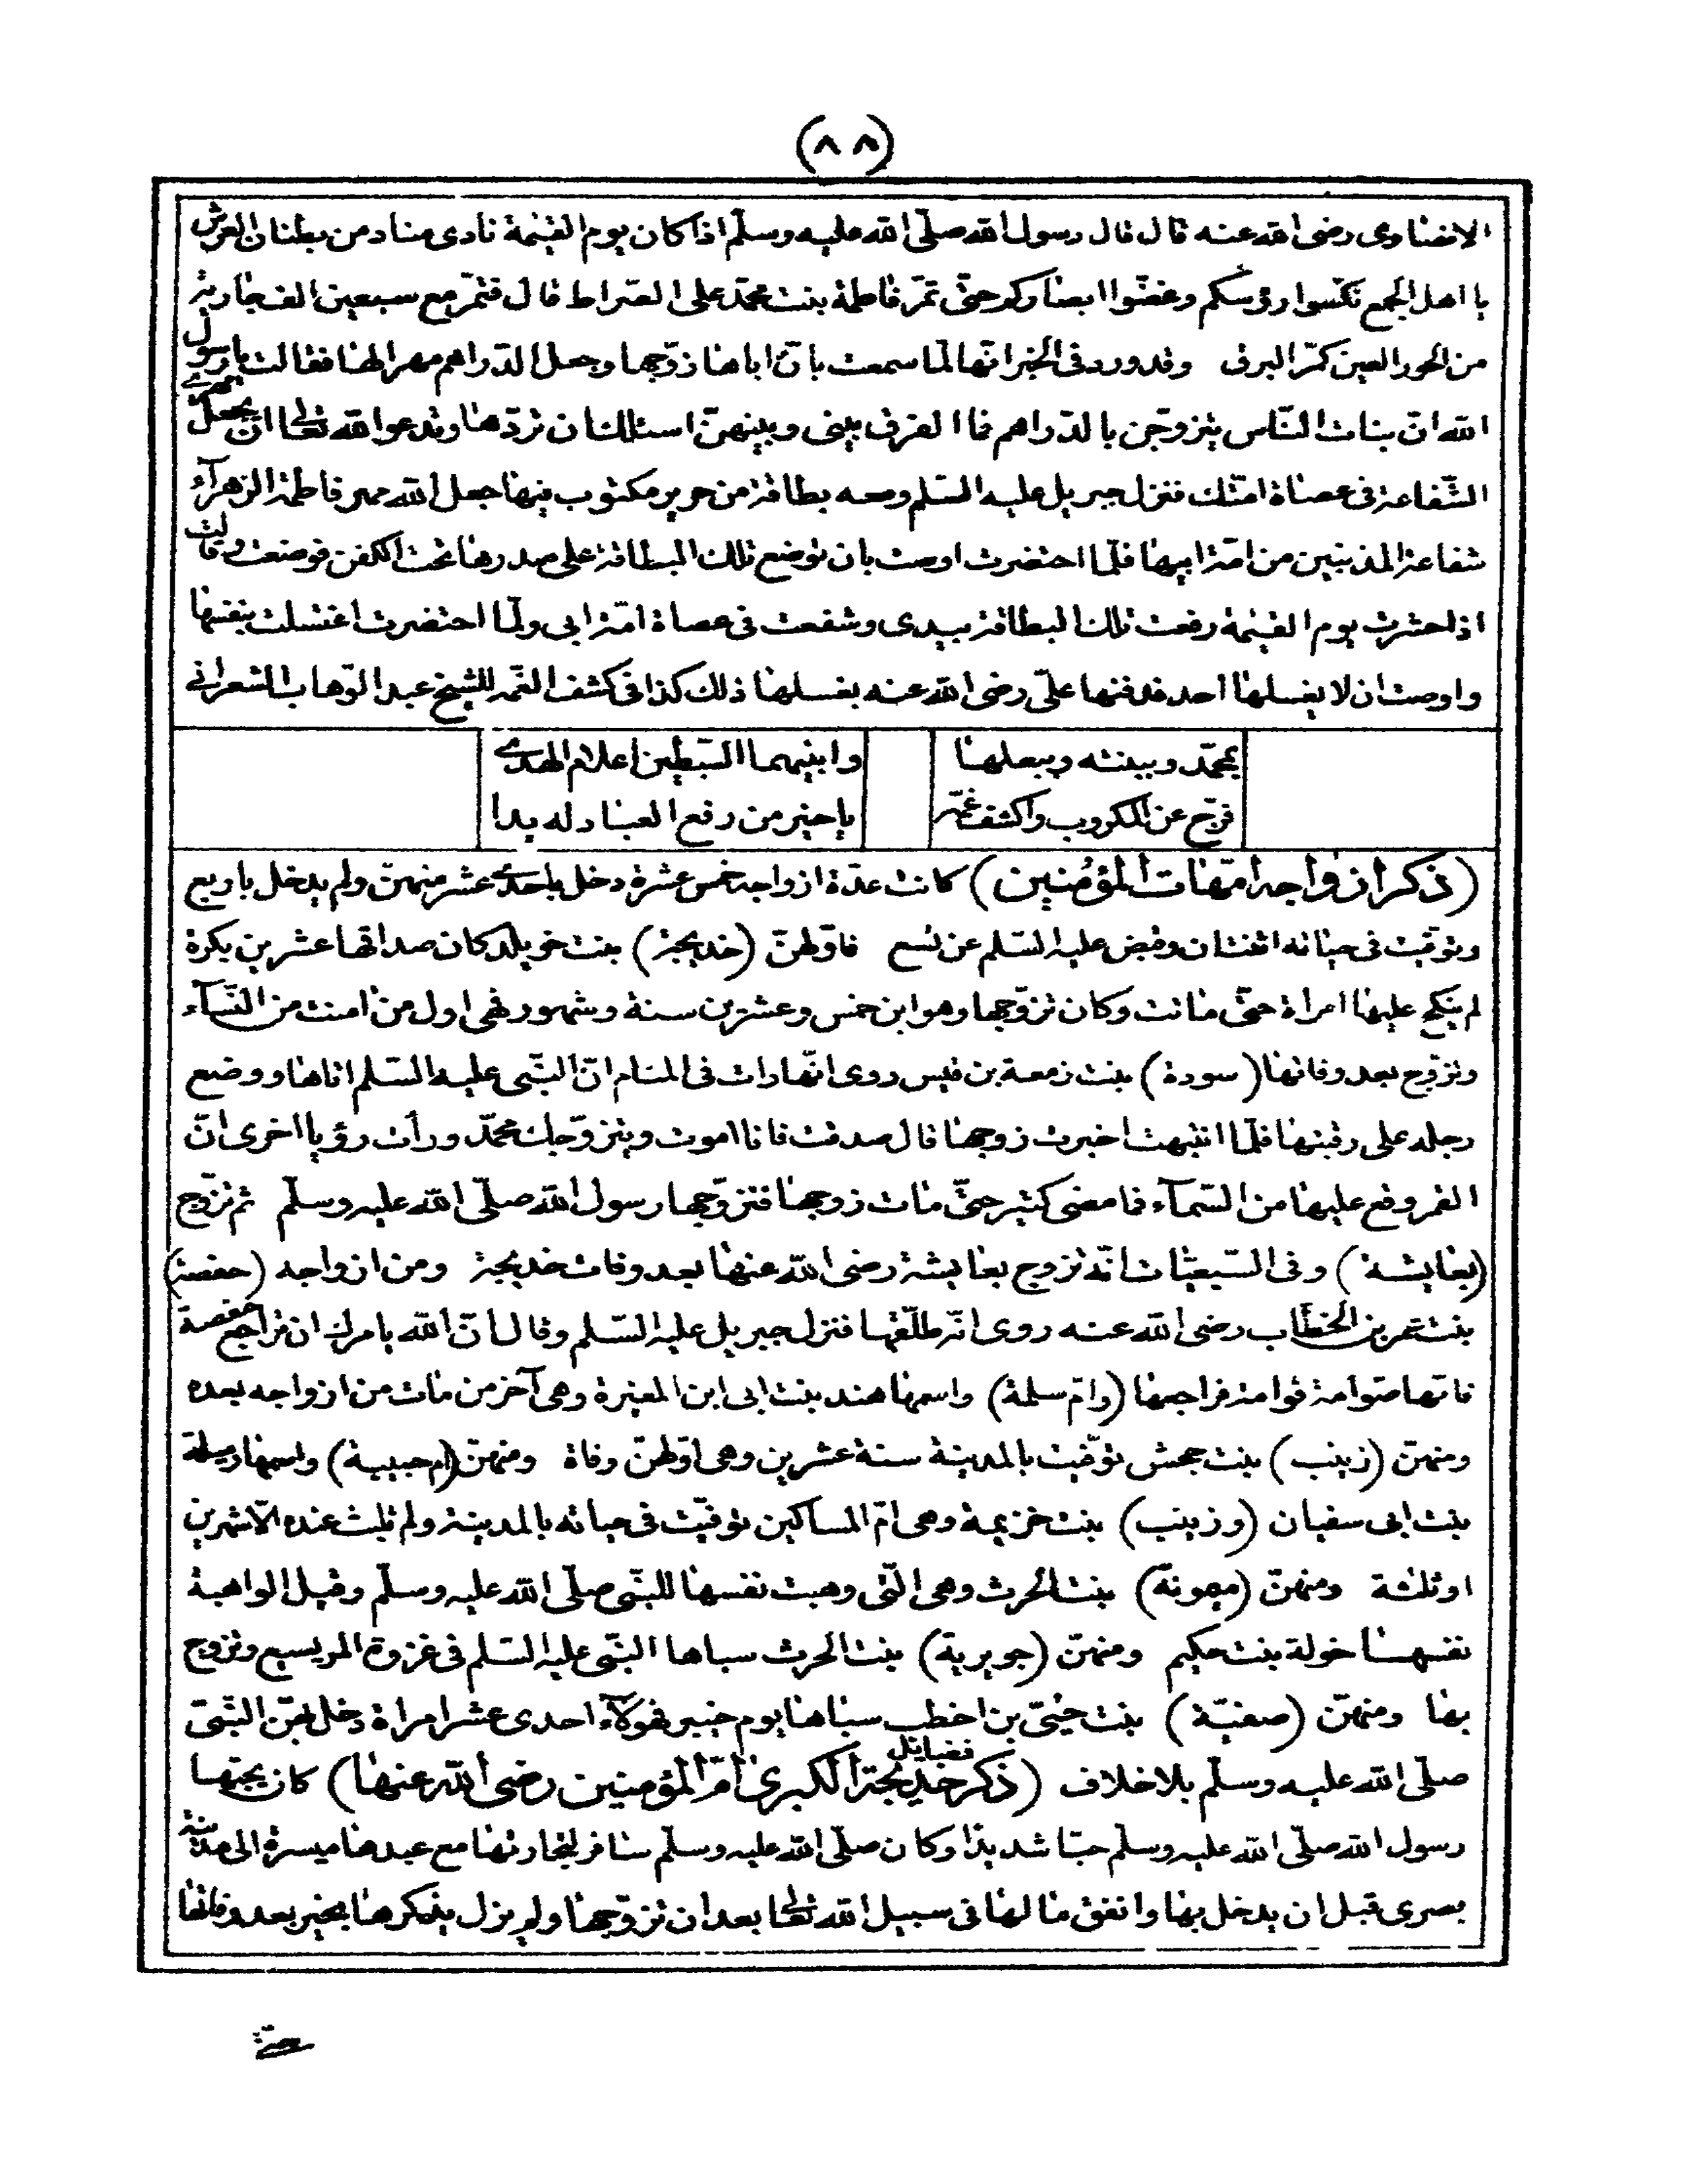 (٨٨)
الانصاوى رضى الله عنه قال قال رسول الله صلّى الله عليه وسلّم اذا كان يوم القيٰمة نادى مناد من بطنان العرش
يا اهل الجمع نكّسوا رؤسكم وغضّوا ابصاركم حتّى تمرّ فاطمة بنت محمّد على الصّراط قال فتمّر مع سبعين الف جارية
من الحور العين كمرّ البرق وقد ورد فى الخبر انّها لمّا سمعت بانّ اباها زوّجها وجعل الدّراهم مهرا لها فقالت يا رسول
الله انّ بنات النّاس يتزوّجن بالدّراهم فما الفرق بينى وبينهنّ اسئلك ان تردّها وتدعو الله تعالى ان يجعل مهرى
الشّفاعة فى عصاة امّتك فنزل جبريل عليه السّلم ومعه بطاقة من حرير مكتوب فيها جعل الله مهر فاطمة الزهرآء
شفاعة المذنبين من امّة ابيها فلمّا احتضرت اوصت بان توضع تلك البطاقة على صدرها تحت الكفن فوضعت وقالت
اذا حشرت يوم القيٰمة رفعت تلك البطاقة بيدى وشفعت فى عصاة امّة ابى ولمّا احتضرت اغتسلت بنفسها
واوصت ان لا يغسلها احد فدفنها علىّ رضى الله عنه بغسلها ذلك كذا فى كشف الغمّه للشيخ عبد الوّهاب الشعرانى
بمحمّد وببنته وببعلها وابنيهما السّبطين اعلام الهدى
فرّج عن المكروب واكشف غمّه يا خير من رفع العباد له يدا
(ذكر ازواجه امّهات المؤمنين) كانت عدّة ازواجه خمس عشرة دخل باحدى عشر منهنّ ولم يدخل باربع
وتوفّيت فى حياته اثنتان وقبض عليه السّلم عن تسع فاوّلهنّ (خديجة) بنت خويلد كان صداقها عشرين بكرة
لم ينكح عليها امراة حتّى ماتت وكان تزوّجها وهو ابن خمس وعشرين سنة وشهور فهى اول من امنت من النّسآء
وتزوّج بعد وفاتها (سودة) بنت زمعة بن قيس روى انّها رات فى المنام انّ النّبى عليه السّلم اتاها ووضع
رجله على رقبتها فلمّا انتبهت اخبرت زوجها قال صدقت فانا اموت ويتزوّجك محمّد ورأت رؤيا اخرى انّ
القمر وقع عليها من السّمآء فما مضى كثير حتّى مات زوجها فتزوّجها رسول الله صلّى الله عليه وسلّم ثم تزوّج
(بعايشة) وفى السّبعيّات انّه تزوج بعايشة رضى الله عنها بعد وفات خديجة ومن ازواجه (حفصة)
بنت عمر بن الخطّاب رضى الله عنه روى انّه طلّقها فنزل جبريل عليه السّلم وقال انّ الله يامرك ان تراجع حفصة
فانّها صوّامة قوّامة فراجعها (وامّ سلمة) واسمها هند بنت ابى ابن المغيرة وهى آخر من مات من ازواجه بعده
ومنهنّ (زينب) بنت جحش توّفيت بالمدينة سنة عشرين وهى اوّلهنّ وفاة ومنهنّ (ام حبيبة) واسمها رملة
بنت ابى سفيان (وزينب) بنت خزيمة وهى امّ المساكين توفيّت فى حياته بالمدينة ولم تلبث عنده الّا شهرين
او ثلثة ومنهنّ (ميمونة) بنت الحرث وهى الّتى وهبت نفسها للنبّى صلّى الله عليه وسلّم وقيل الواهبة
نفسها خولة بنت حكيم ومنهنّ (جويرية) بنت الحرث سباها النبّى عليه السّلم فى غزوة المريسيع وتزوج
بها ومنهنّ (صفيّة) بنت حيىّ بن اخطب سباها يوم خيبر فهؤلآء احدى عشر امراة دخل بهنّ النبّى
صلّى الله عليه وسلّم بلا خلاف (ذكر فضايل خديجة الكبرى امّ المؤمنين رضى الله عنها) كان يحبّها
رسول الله صلّى الله عليه وسلّم حبّا شديدا وكان صلّى الله عليه وسلّم سافر لتجارتها مع عبدها ميسرة الى مدينة
بصرى قبل ان يدخل بها وانفق مالها فى سبيل الله تعالى بعد ان تزوّجها ولم يزل يذكرها بخير بعد وفاتها